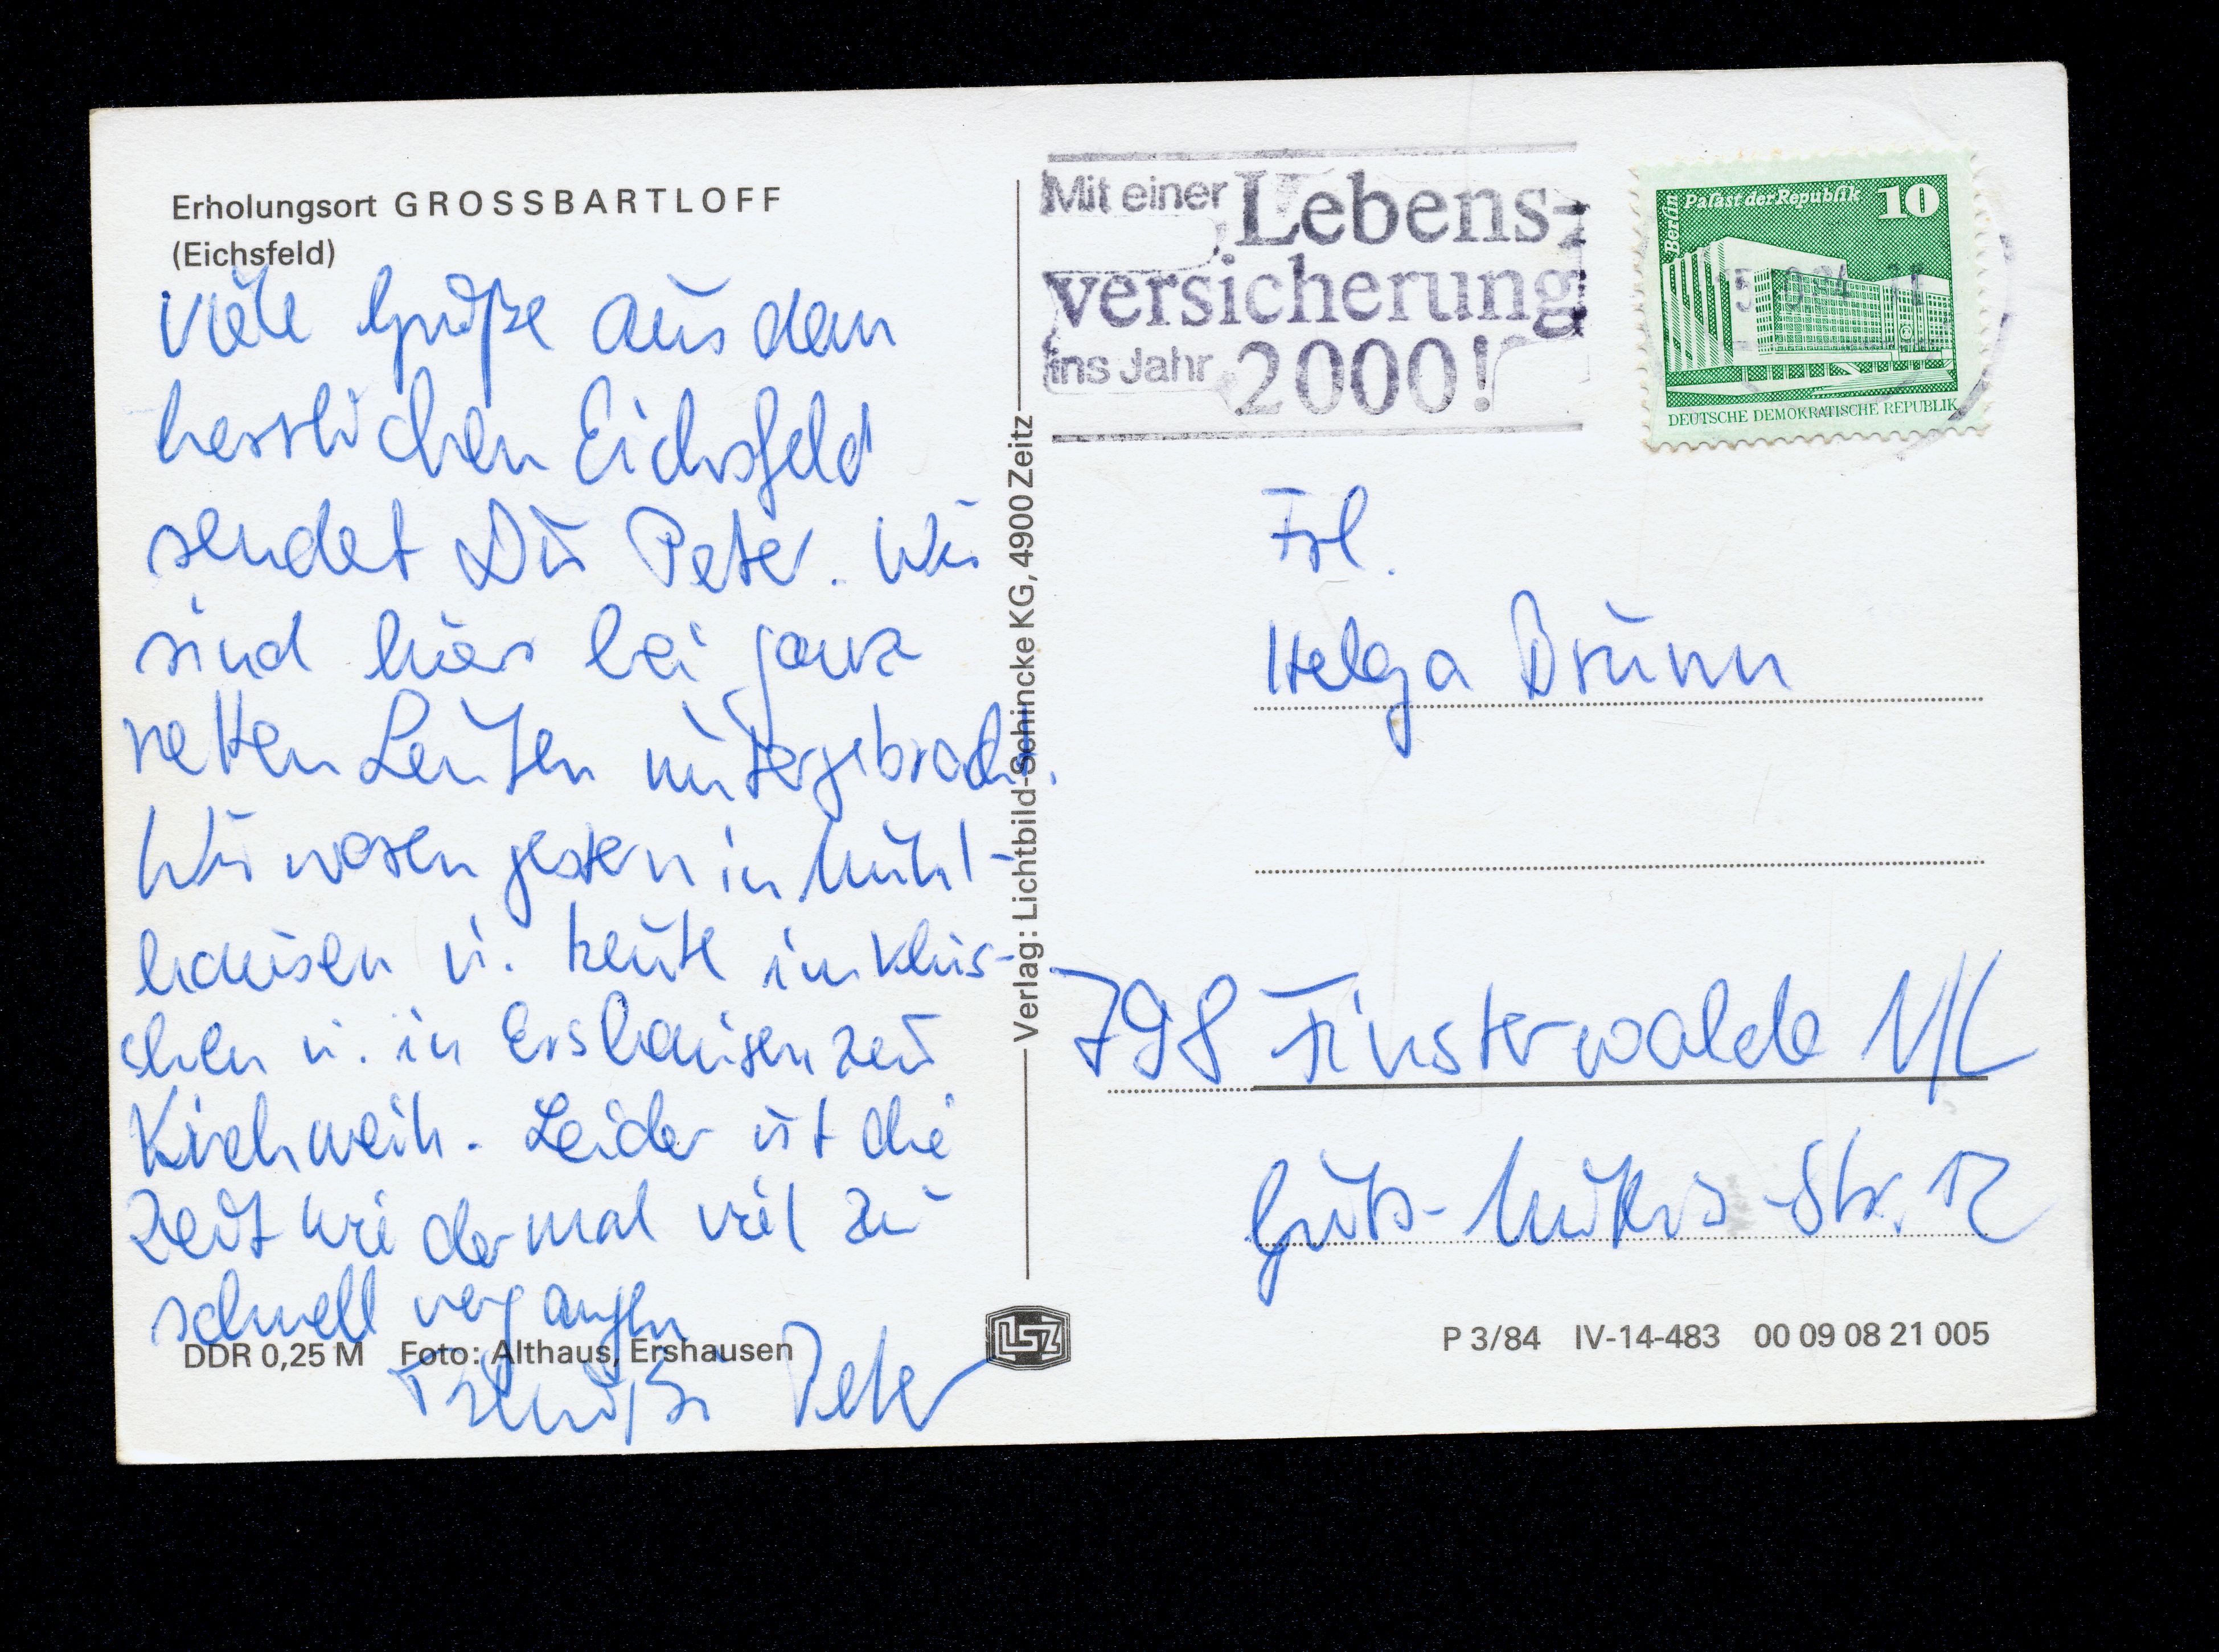 Erholungsort GROSSBARTLOFF
(Eichsfeld)
Viele Grüße aus dem
herrlichen Eichsfeld
sendet Dir Peter. Wir
sind hier bei ganz
netten Leuten untergebracht.
Wir waren gestern in Mühl-
hausen u. heute im Klüs-
chen u. in Ershausen zur
Kirchweih. Leider ist die
Zeit wieder mal viel zu
schnell vergangen
DDR 0,25 M Foto: Althaus, Ershausen
Peter
Verlag: Lichtbild-Schincke KG, 4900 Zeitz
LSZ
Mit einer Lebens-
versicherung
ins Jahr 2000!
Berlin Palast der Republik 10
DEUTSCHE DEMOKRATISCHE REPUBLIK
Frl.
Helga Brunn
798 Finsterwalde N/L
Guts-Muths-Str. 12
P 3/84 IV-14-483 00 09 08 21 005